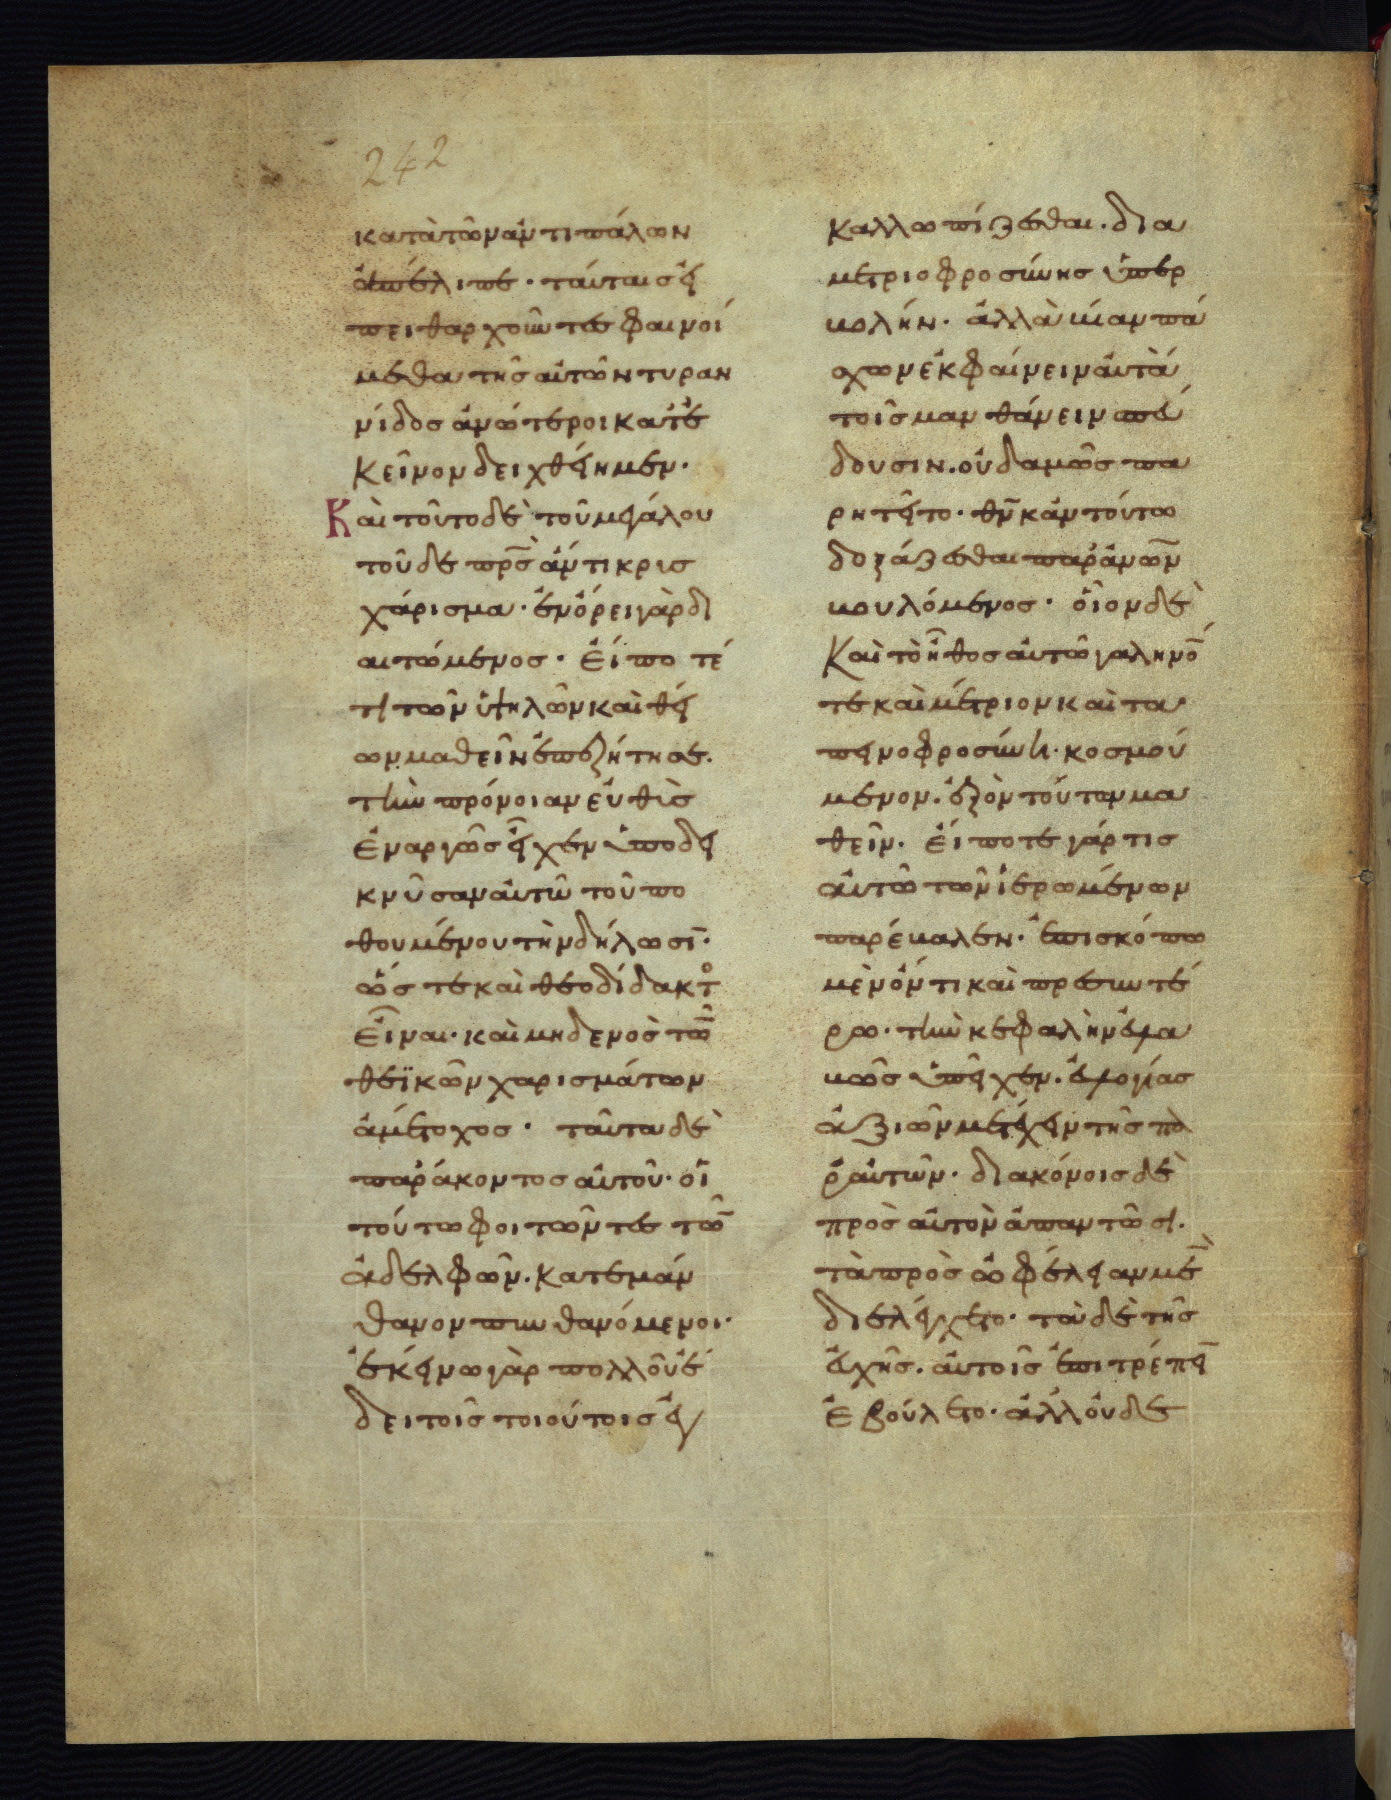 242
κατὰ τῶν ἀντιπάλων
ἀπέλιπε· ταύταις εἰ
πειθαρχοῦντες φαινοί
μεθα τῆς αὐτῶν τυραν
νίδος ἀνώτεροι κατ' ἐ
κεῖνον δειχθείημεν·
Καὶ τοῦτο δὲ τοῦ μεγάλου
τοῦδε πρς ἀντικρις
χάρισμα· ἐν ὄρει γὰρ δι
αιτώμενος· εἴ πο τέ
τι τῶν ὑψηλῶν καὶ θεί
ων μαθεῖν ἐπεζήτησε·
τὴν πρόνοιαν εὐθὺς
ἐναργῶς εἶχεν ὑποδει
κνῦσαν αὐτῶ τοῦ πο
θουμένου τὴν δήλωσι̅·
ὥς τε καὶ θεοδίδακτο
εἶναι· καὶ μηδενὸς τῶ̅
θεϊκῶν χαρισμάτων
ἀμέτοχος· ταῦτα δὲ
παρ' ἄκοντος αὐτοῦ· οἱ
τούτω φοιτῶντες τῶ̅
ἀδελφῶν· κατεμάν
θανον πυνθανόμενοι·
ἐκείνω γὰρ πολλοῦ ἐ
δει τοῖς τοιούτοις ἐγ
καλλωπίζεσθαι· δια
μετριοφροσύνης ὑπερ
βολήν· ἀλλὰ κἀν πά
σχων ἐκφαίνειν αὐτὰ
τοῖς μανθάνειν σπεύ
δουσιν· οὐδαμῶς πα
ρητεῖτο· θ̅υ κἀν τούτω
δοξάζεσθαι παρ' ἀν̅ω̅ν
βουλόμενος· οἷον δὲ
καὶ τὸ ἦθος αὐτῶ γαληνό̅
τε καὶ μέτριον καὶ τα
πεινοφροσύνη· κοσμού
μενον· ἐξὸν τοῦτον μα
θεῖν· εἴ ποτε γάρ τις
αὐτῶ τῶν ἱερωμένων
παρέβαλεν· ἐπισκόπω
μὲν ὄντι καὶ πρεσβυτέ
ρω· τὴν κεφαλὴν εὐλα
βῶς ὑπεῖχεν· εὐλογίας
ἀξιῶν μετέχειν τῆς πα
ρ' αὐτῶν· διακόνοις δὲ
πρὸς αὐτὸν ἀπαντῶσι·
τὰ πρὸς ὠφέλειαν μὲ̅
διελέγετο· τὰ δὲ τῆς
εὐχῆς· αὐτοῖς ἐπιτρέπει̅
ἐβούλετο· ἀλλ' οὐδὲ